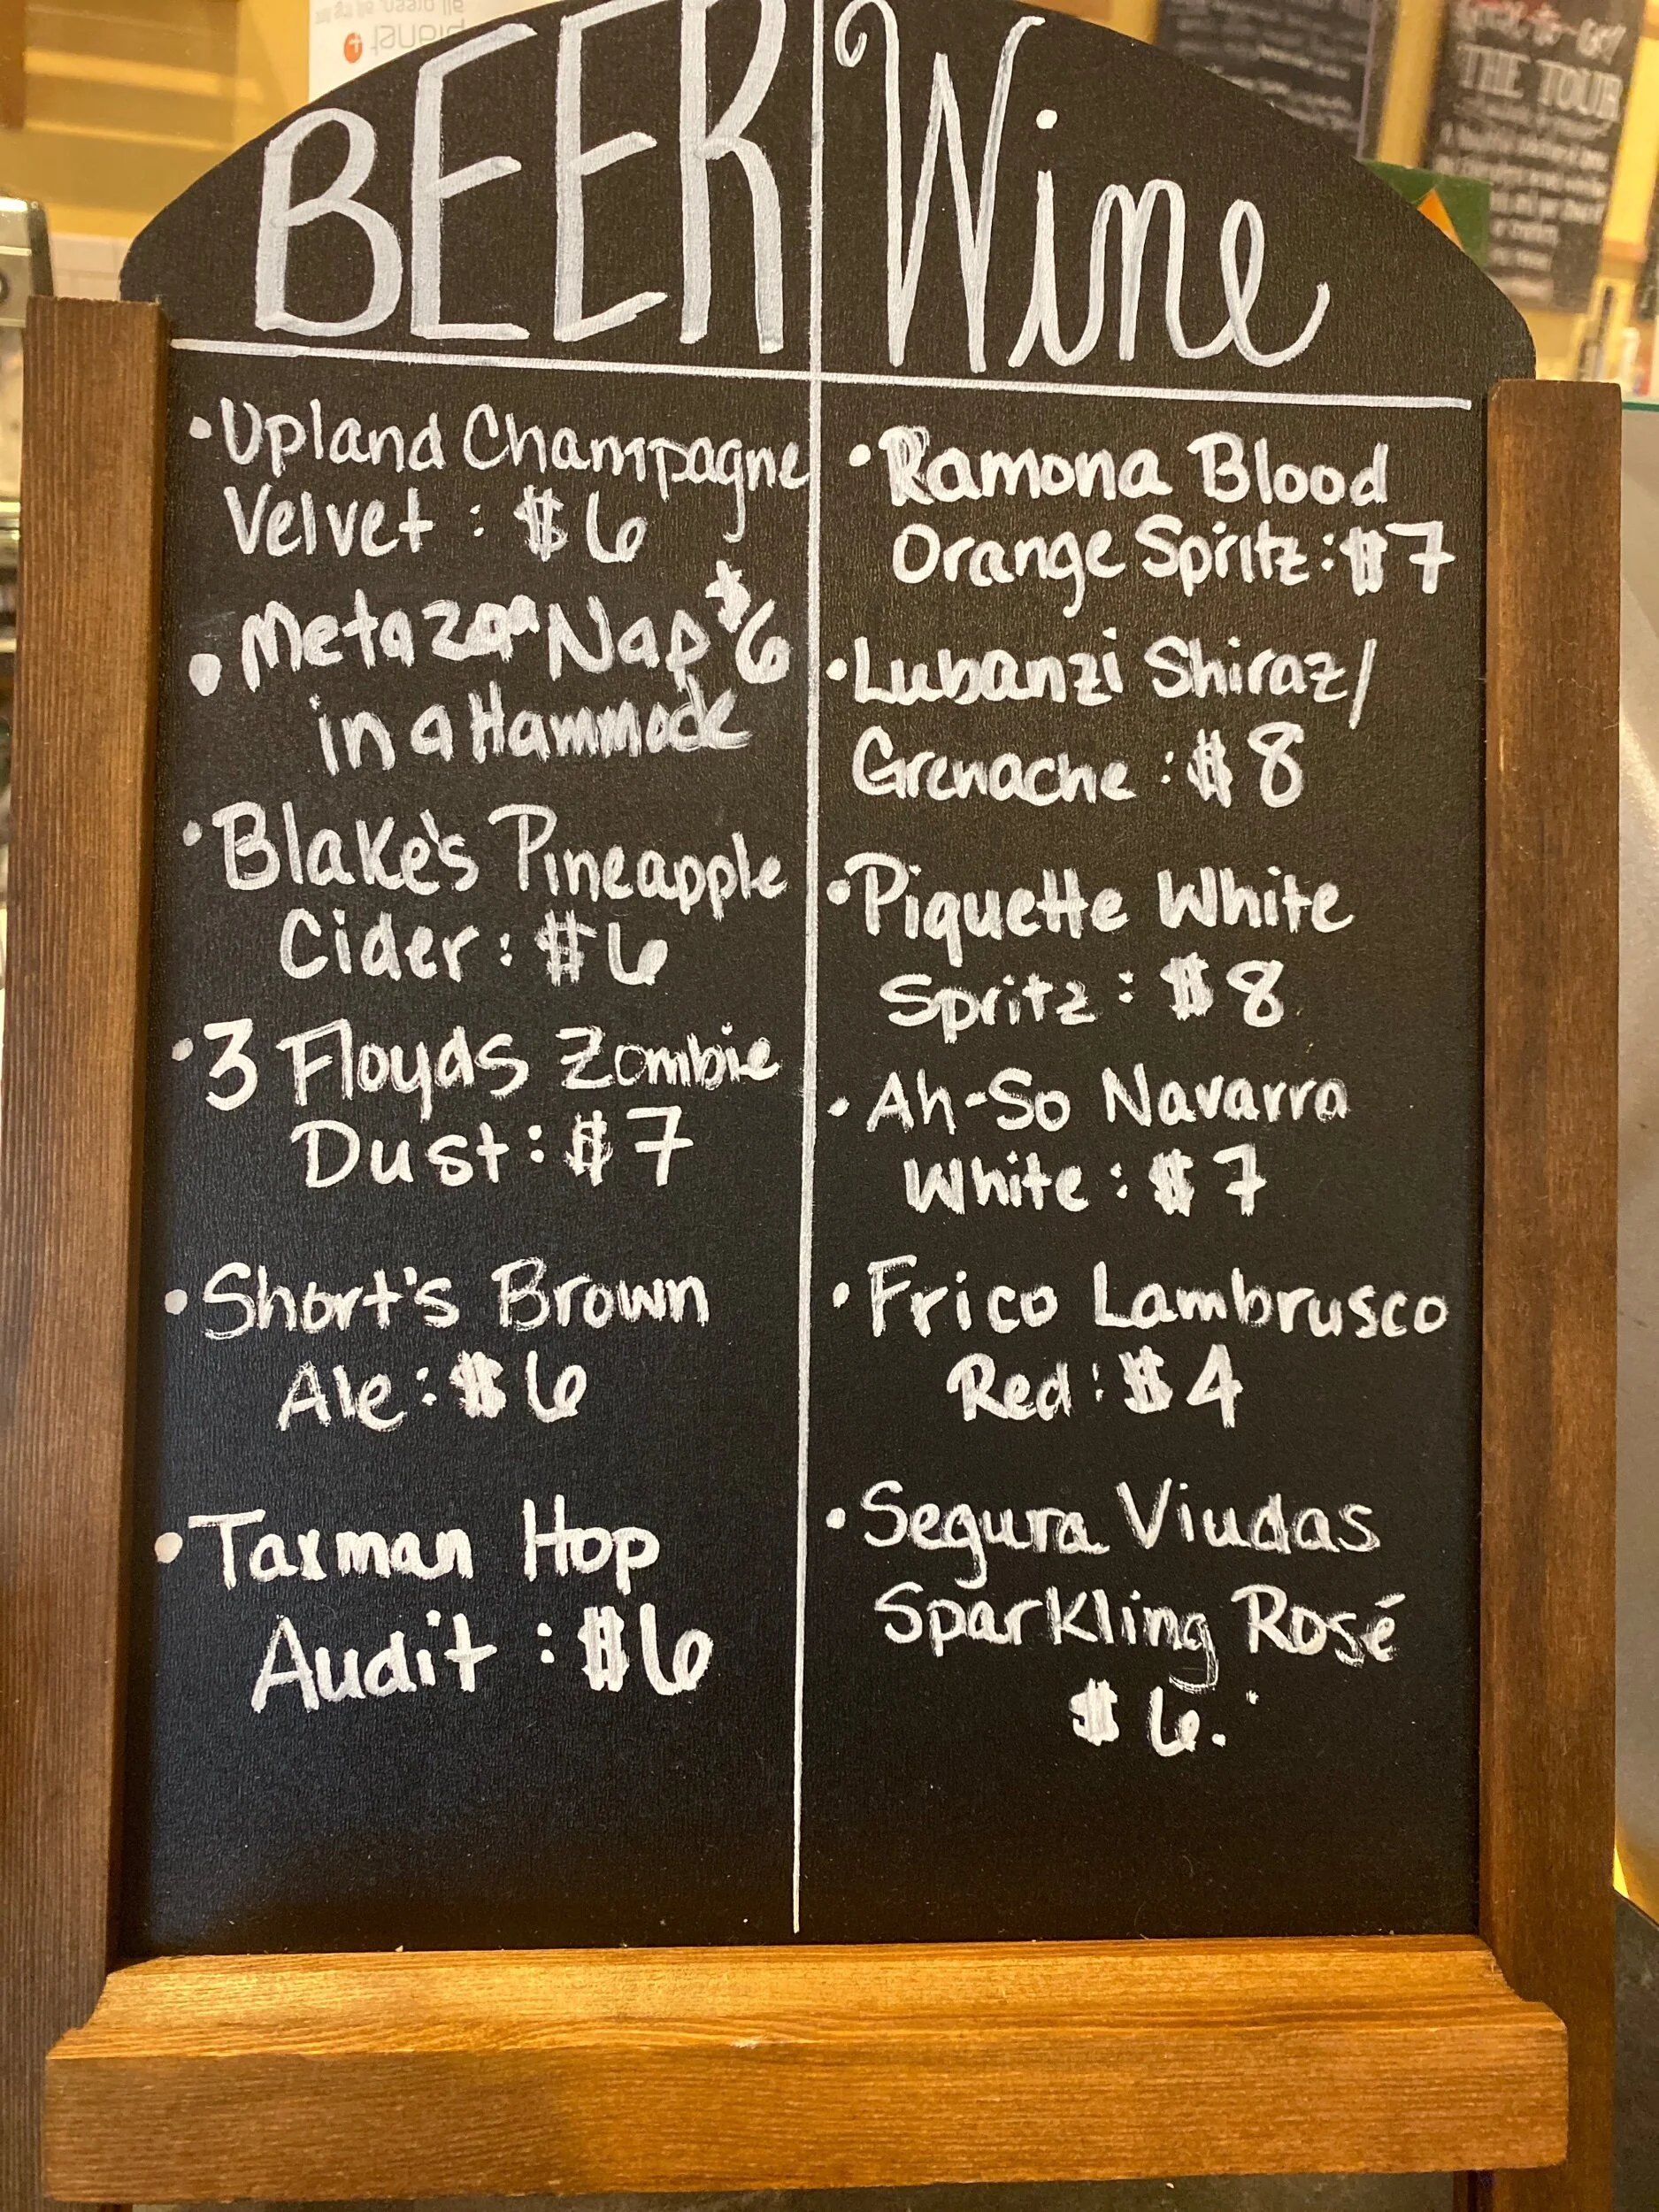 planet +
BEER
Wine
• Upland Champagne
Velvet : $6
• Metazoa Nap $6
in a Hammock
• Blake's Pineapple
Cider : $6
• 3 Floyds Zombie
Dust : $7
• Short's Brown
Ale : $6
• Taxman Hop
Audit : $6
• Ramona Blood
Orange Spritz : $7
• Lubanzi Shiraz/
Grenache : $8
• Piquette White
Spritz : $8
• Ah-So Navarra
White : $7
• Frico Lambrusco
Red : $4
• Segura Viudas
Sparkling Rosé
$6.
THE TOUR